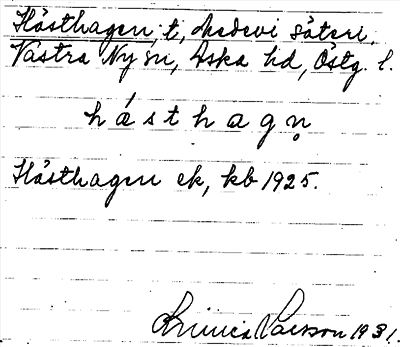 Hästhagen, t, Medevi säteri,
Västra Ny sn, Aska hd, Östg. l.
hásthagn̥
Hästhagen ek, kb 1925.
Larsson 1931.